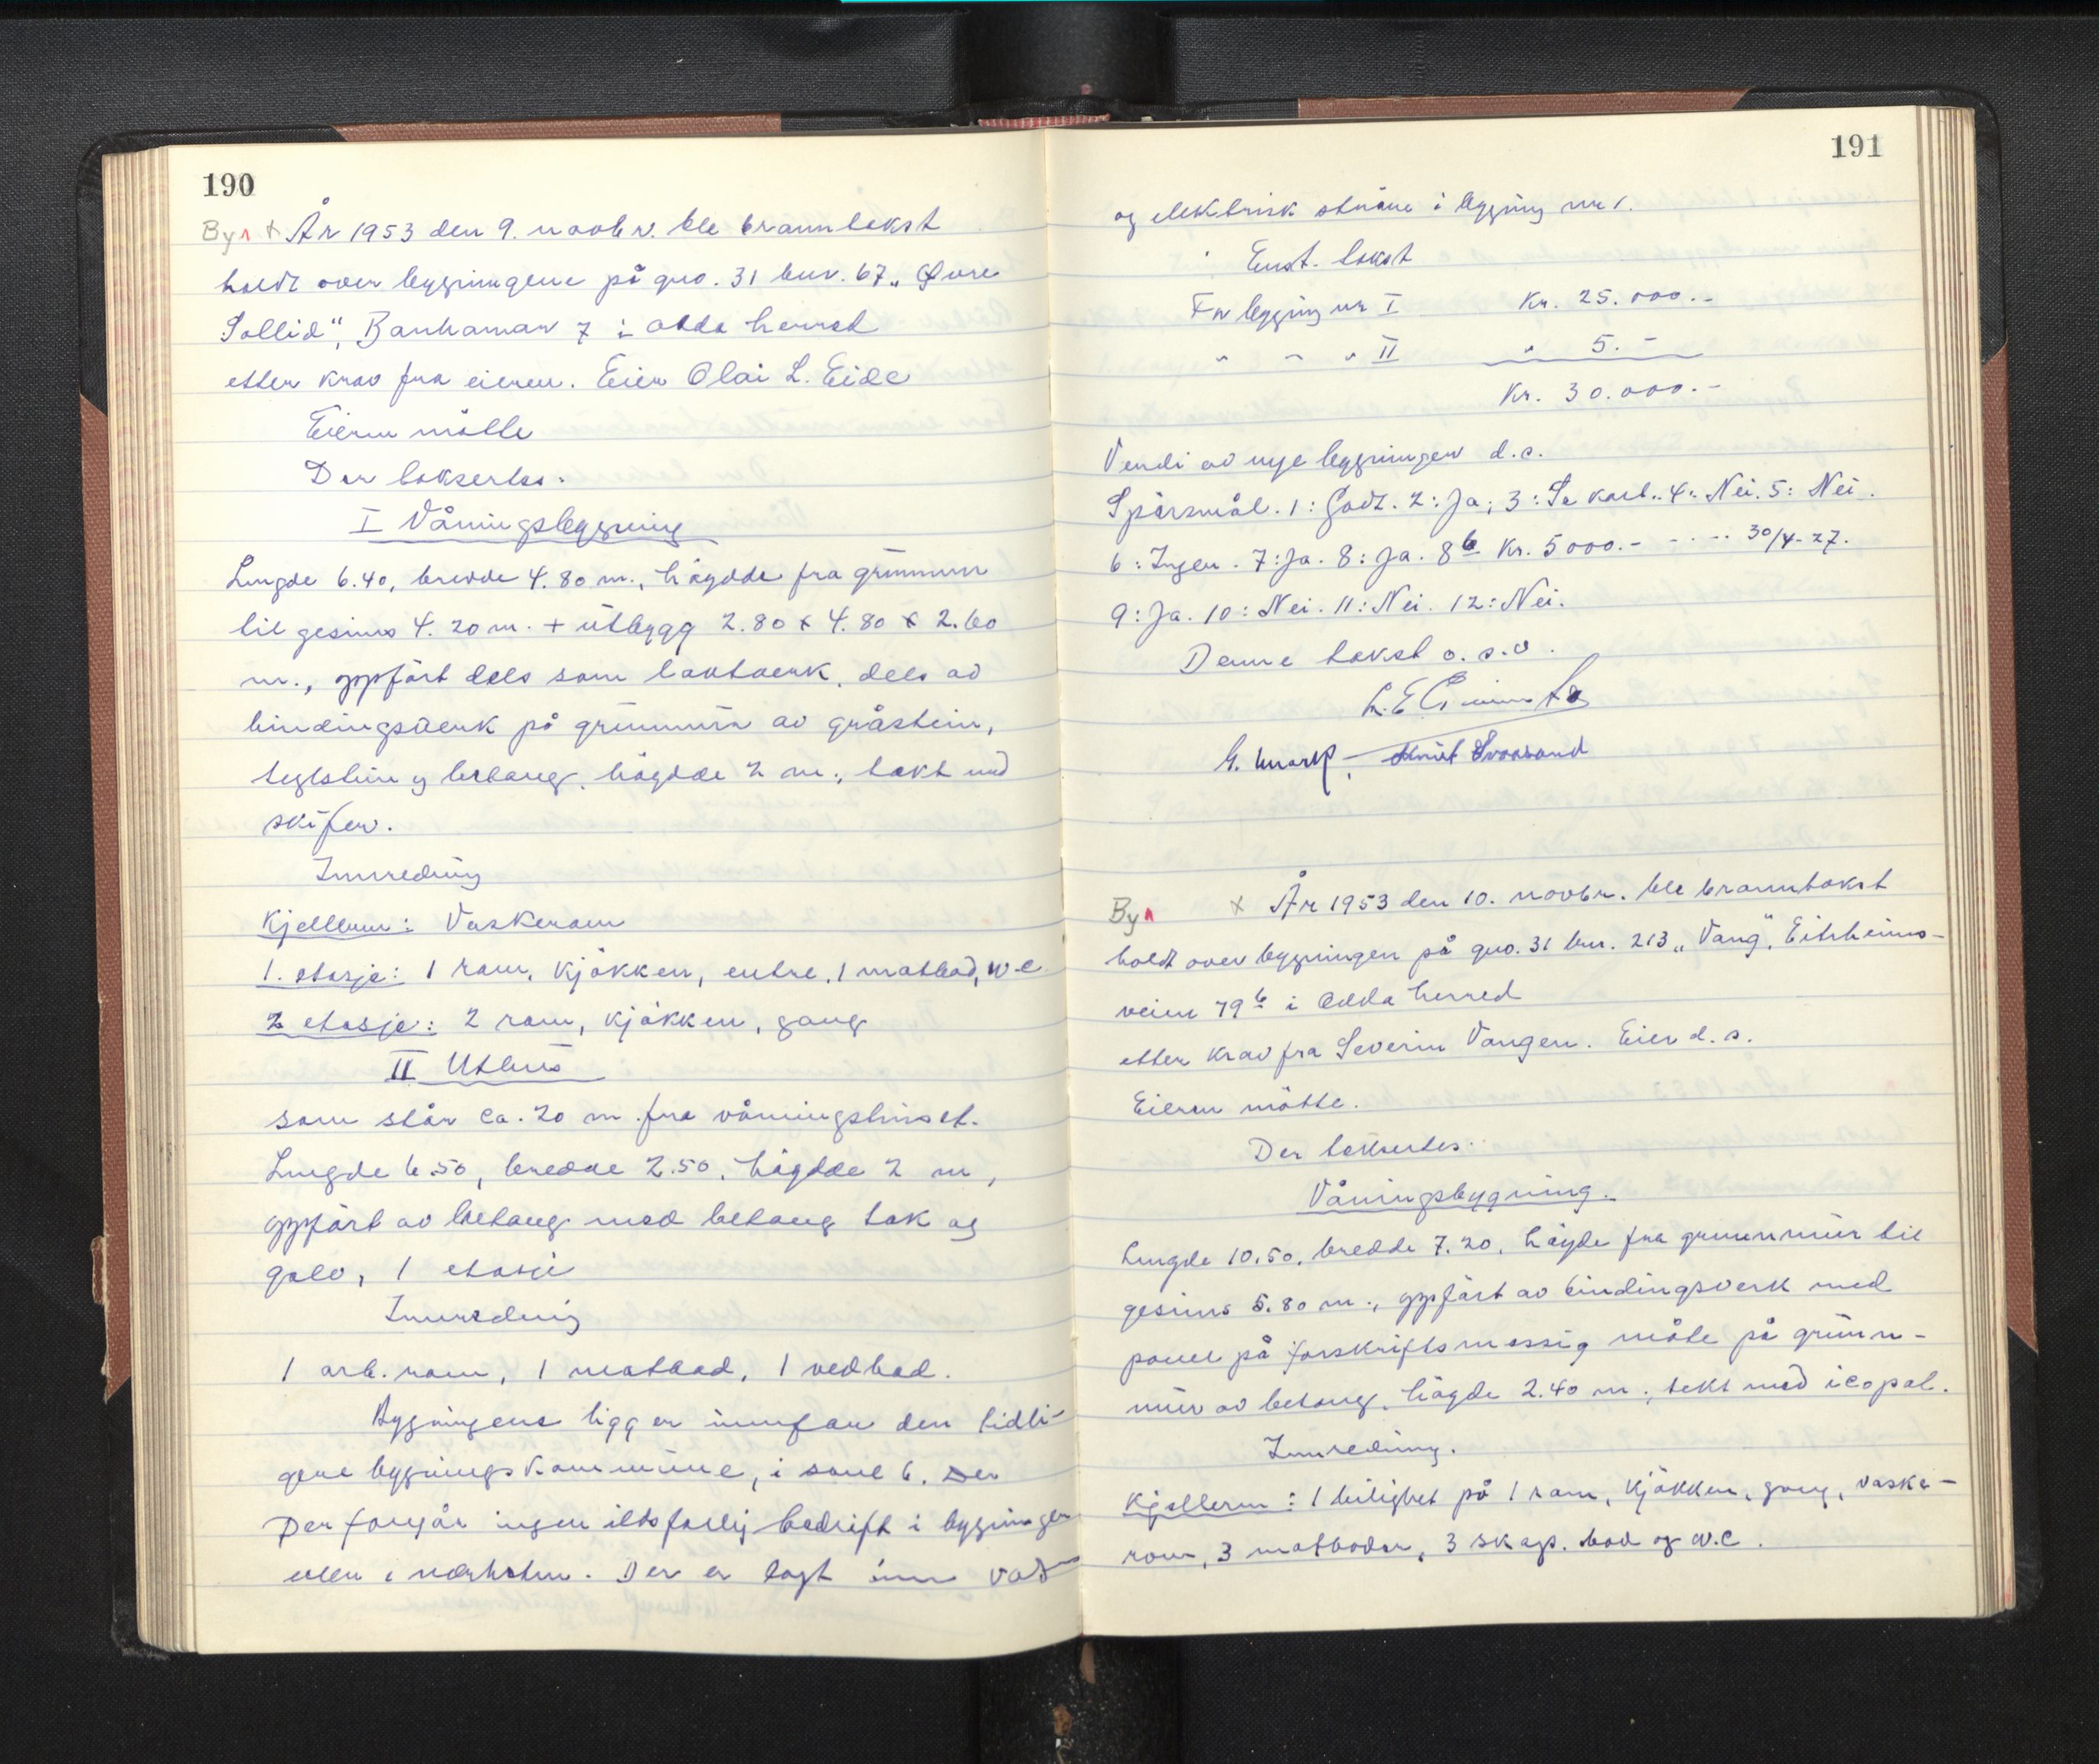 190
By 1 x År 1953 den 9. novbr. ble branntakst
holdt over bygningene på gno. 31 bnr. 67 „Øvre
Sollid", 7 i Odda herred
etter krav fra eieren. Eier Olai L. Eide
Eieren møtte
Der taksertes:
I Våningsbygning
Lengde 6.40, bredde 4.80 m., høgdde fra grunnmur
til gesims 4.20 m. + utbygg 2.80 x 4.80 x 2.60
m., oppført dels som laftverk, dels av
bindingsverk på grunnmur av gråstein,
teglstein og betong, høgdde 2 m., tekt med
skifer.
Innredning
Kjelleren: Vaskerom
1. etasje: 1 rom, kjøkken, entre, 1 matbod, w.c
2 etasje: 2 rom, kjøkken, gang
II Uthus
som står ca. 20 m. fra våningshuset.
Lengde 6.50, bredde 2.50, høgdde 2 m,
oppført av betong med betong tak og
golv, 1 etasje
Innredning
1 arb. rom, 1 matbod, 1 vedbod.
Bygningene ligger innfor den tidli-
gere bygningskommune, i sone 6. Der
Der foregår ingen ildsfarlig bedrift i bygningen
eller i nærheten. Der er lagt inn vatn
191
og elektrisk strøm i bygning nr 1.
Enst. takst
For bygning nr I Kr. 25.000.-
" " " II " 5. -
Kr. 30.000.-
Verdi av nye bygninger d.s.
Spørsmål. 1: Godt. 2: Ja; 3: Se kart. 4: Nei. 5: Nei.
6: Ingen. 7: Ja. 8: Ja. 8b Kr. 5000.- - . - .. 30/4-27.
9: Ja. 10: Nei. 11: Nei. 12: Nei.
Denne takst o.s.v.
L. E.
G. Knut
By 1 x År 1953 den 10. novbr. ble branntakst
holdt over bygningen på gno. 31 bnr. 213 „Vang", Eitrheims-
veien 79 b i Odda herred
etter krav fra Severin Vangen. Eier d.s.
Eieren møtte.
Der taksertes:
Våningsbygning.
Lengde 10.50, bredde 7.20, høyde fra grunnmur til
gesims 5.80 m., oppført av bindingsverk med
panel på forskriftsmessig måte på grunn-
mur av betong, høgde 2.40 m., tekt med icopal.
Innredning.
Kjelleren: 1 leilighet på 1 rom, kjøkken, gang, vaske-
rom, 3 matboder, 3 skap. bod og w.c.